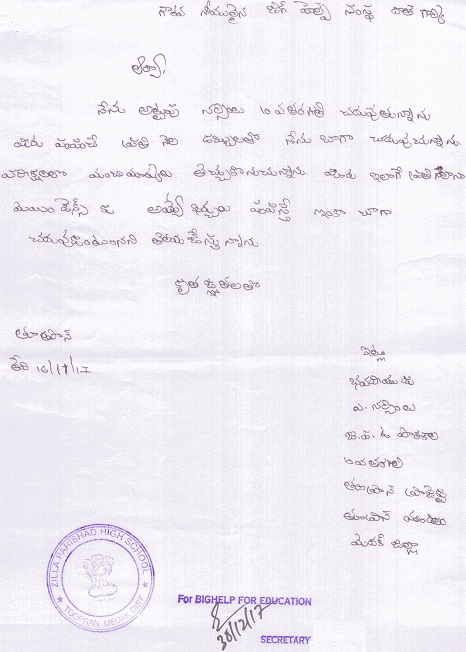 గౌరవ నీయులైన బిగ్ హెల్ప్ సంస్థ వారి గార్కి
ఆర్యా,
నేను నర్సింలు 10 వ తరగతి చదువుతున్నాను
మీరు పంపించే ప్రతి నెల డబ్బులతో నేను బాగా చదువుచున్నాను.
పరీక్షలలో మంచి మార్కులు తెచ్చుకొనుచున్నాను. మీరు ఇలాగే ప్రతి
మెయింటెన్స్ కు అయ్యే ఖర్చులు పంపిస్తే ఇంకా బాగా
చదువుకుంటానని తెలియజేస్తున్నాను
కృతజ్ఞతలతో
తూప్రాన్
తేది 16/11/17
ఇట్లు
భవదీయుడు
ఎ. నర్సింలు
జి.ప.ఉ పాఠశాల
10వతరగతి
తూప్రాన్
తూప్రాన్ మండలం
మెదక్ జిల్లా
ZILLA PARISHAD HIGH SCHOOL
TOOPRAN, MEDAK DIST
For BIGHELP FOR EDUCATION
30/12/17
SECRETARY